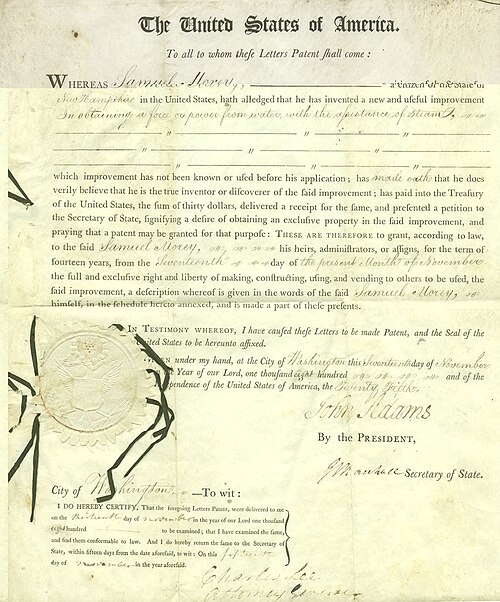 The United States of America.
To all to whom theſe Letters Patent ſhall come :
WHEREAS Samuel Morey, a citizen of the State of
New Hampshire in the United States, hath alledged that he has invented a new and uſeful improvement
In obtaining a force or power from water, with the assistance of Steam
" " "
" " "
" " "
which improvement has not been known or uſed before his application ; has made oath that he does
verily believe that he is the true inventor or diſcoverer of the ſaid improvement ; has paid into the Treaſury
of the United States, the ſum of thirty dollars, delivered a receipt for the ſame, and preſented a petition to
the Secretary of State, ſignifying a deſire of obtaining an excluſive property in the ſaid improvement, and
praying that a patent may be granted for that purpoſe : THESE ARE THEREFORE to grant, according to law,
to the ſaid Samuel Morey, his heirs, adminiſtrators, or aſſigns, for the term of
fourteen years, from the Seventeenth day of the present Month of November
the full and excluſive right and liberty of making, conſtructing, uſing, and vending to others to be uſed, the
ſaid improvement, a deſcription whereof is given in the words of the ſaid Samuel Morey,
himſelf, in the ſchedule hereto annexed, and is made a part of theſe preſents.
IN TESTIMONY WHEREOF, I have cauſed theſe Letters to be made Patent, and the Seal of the
United States to be hereunto affixed.
under my hand, at the City of Washington this Seventeenth day of November
Year of our Lord, one thouſand eight hundred and of the
Independence of the United States of America, the Twenty Fifth.
John Adams
By the PRESIDENT,
J Marshall Secretary of State.
City of Washington, —To wit :
I DO HEREBY CERTIFY, That the foregoing Letters Patent, were delivered to me
on the day of november in the year of our Lord one thouſand
eight hundred to be examined ; that I have examined the ſame,
and find them conformable to law. And I do hereby return the ſame to the Secretary of
State, within fifteen days from the date aforeſaid, to wit : On this fifteenth
day of November in the year aforeſaid.
Charles Lee
Attorney General